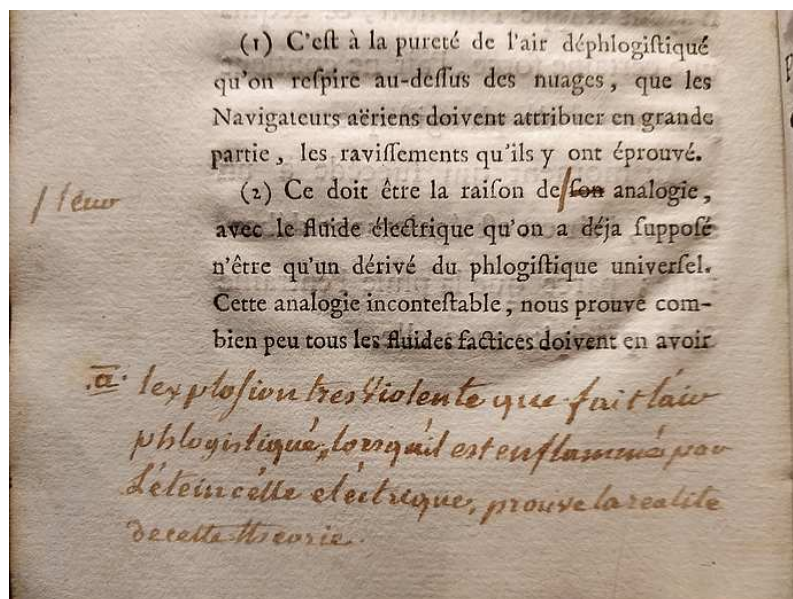 (1) C'eſt à la pureté de l'air déphlogiſtiqué
qu'on reſpire au-deſſus des nuages, que les
Navigateurs aëriens doivent attribuer en grande
partie, les raviſſements qu'ils y ont éprouvé.
(2) Ce doit être la raiſon de ſon analogie,
/ leur
avec le fluide électrique qu'on a déja ſuppoſé
n'être qu'un dérivé du phlogiſtique univerſel.
Cette analogie inconteſtable, nous prouve com-
bien peu tous les fluides factices doivent en avoir
a. l'exploſion tres violente que fait l'air
phlogistiqué, lorsqu'il est enflammé par
L'éteincelle electrique, prouve la realité
de cette theorie.